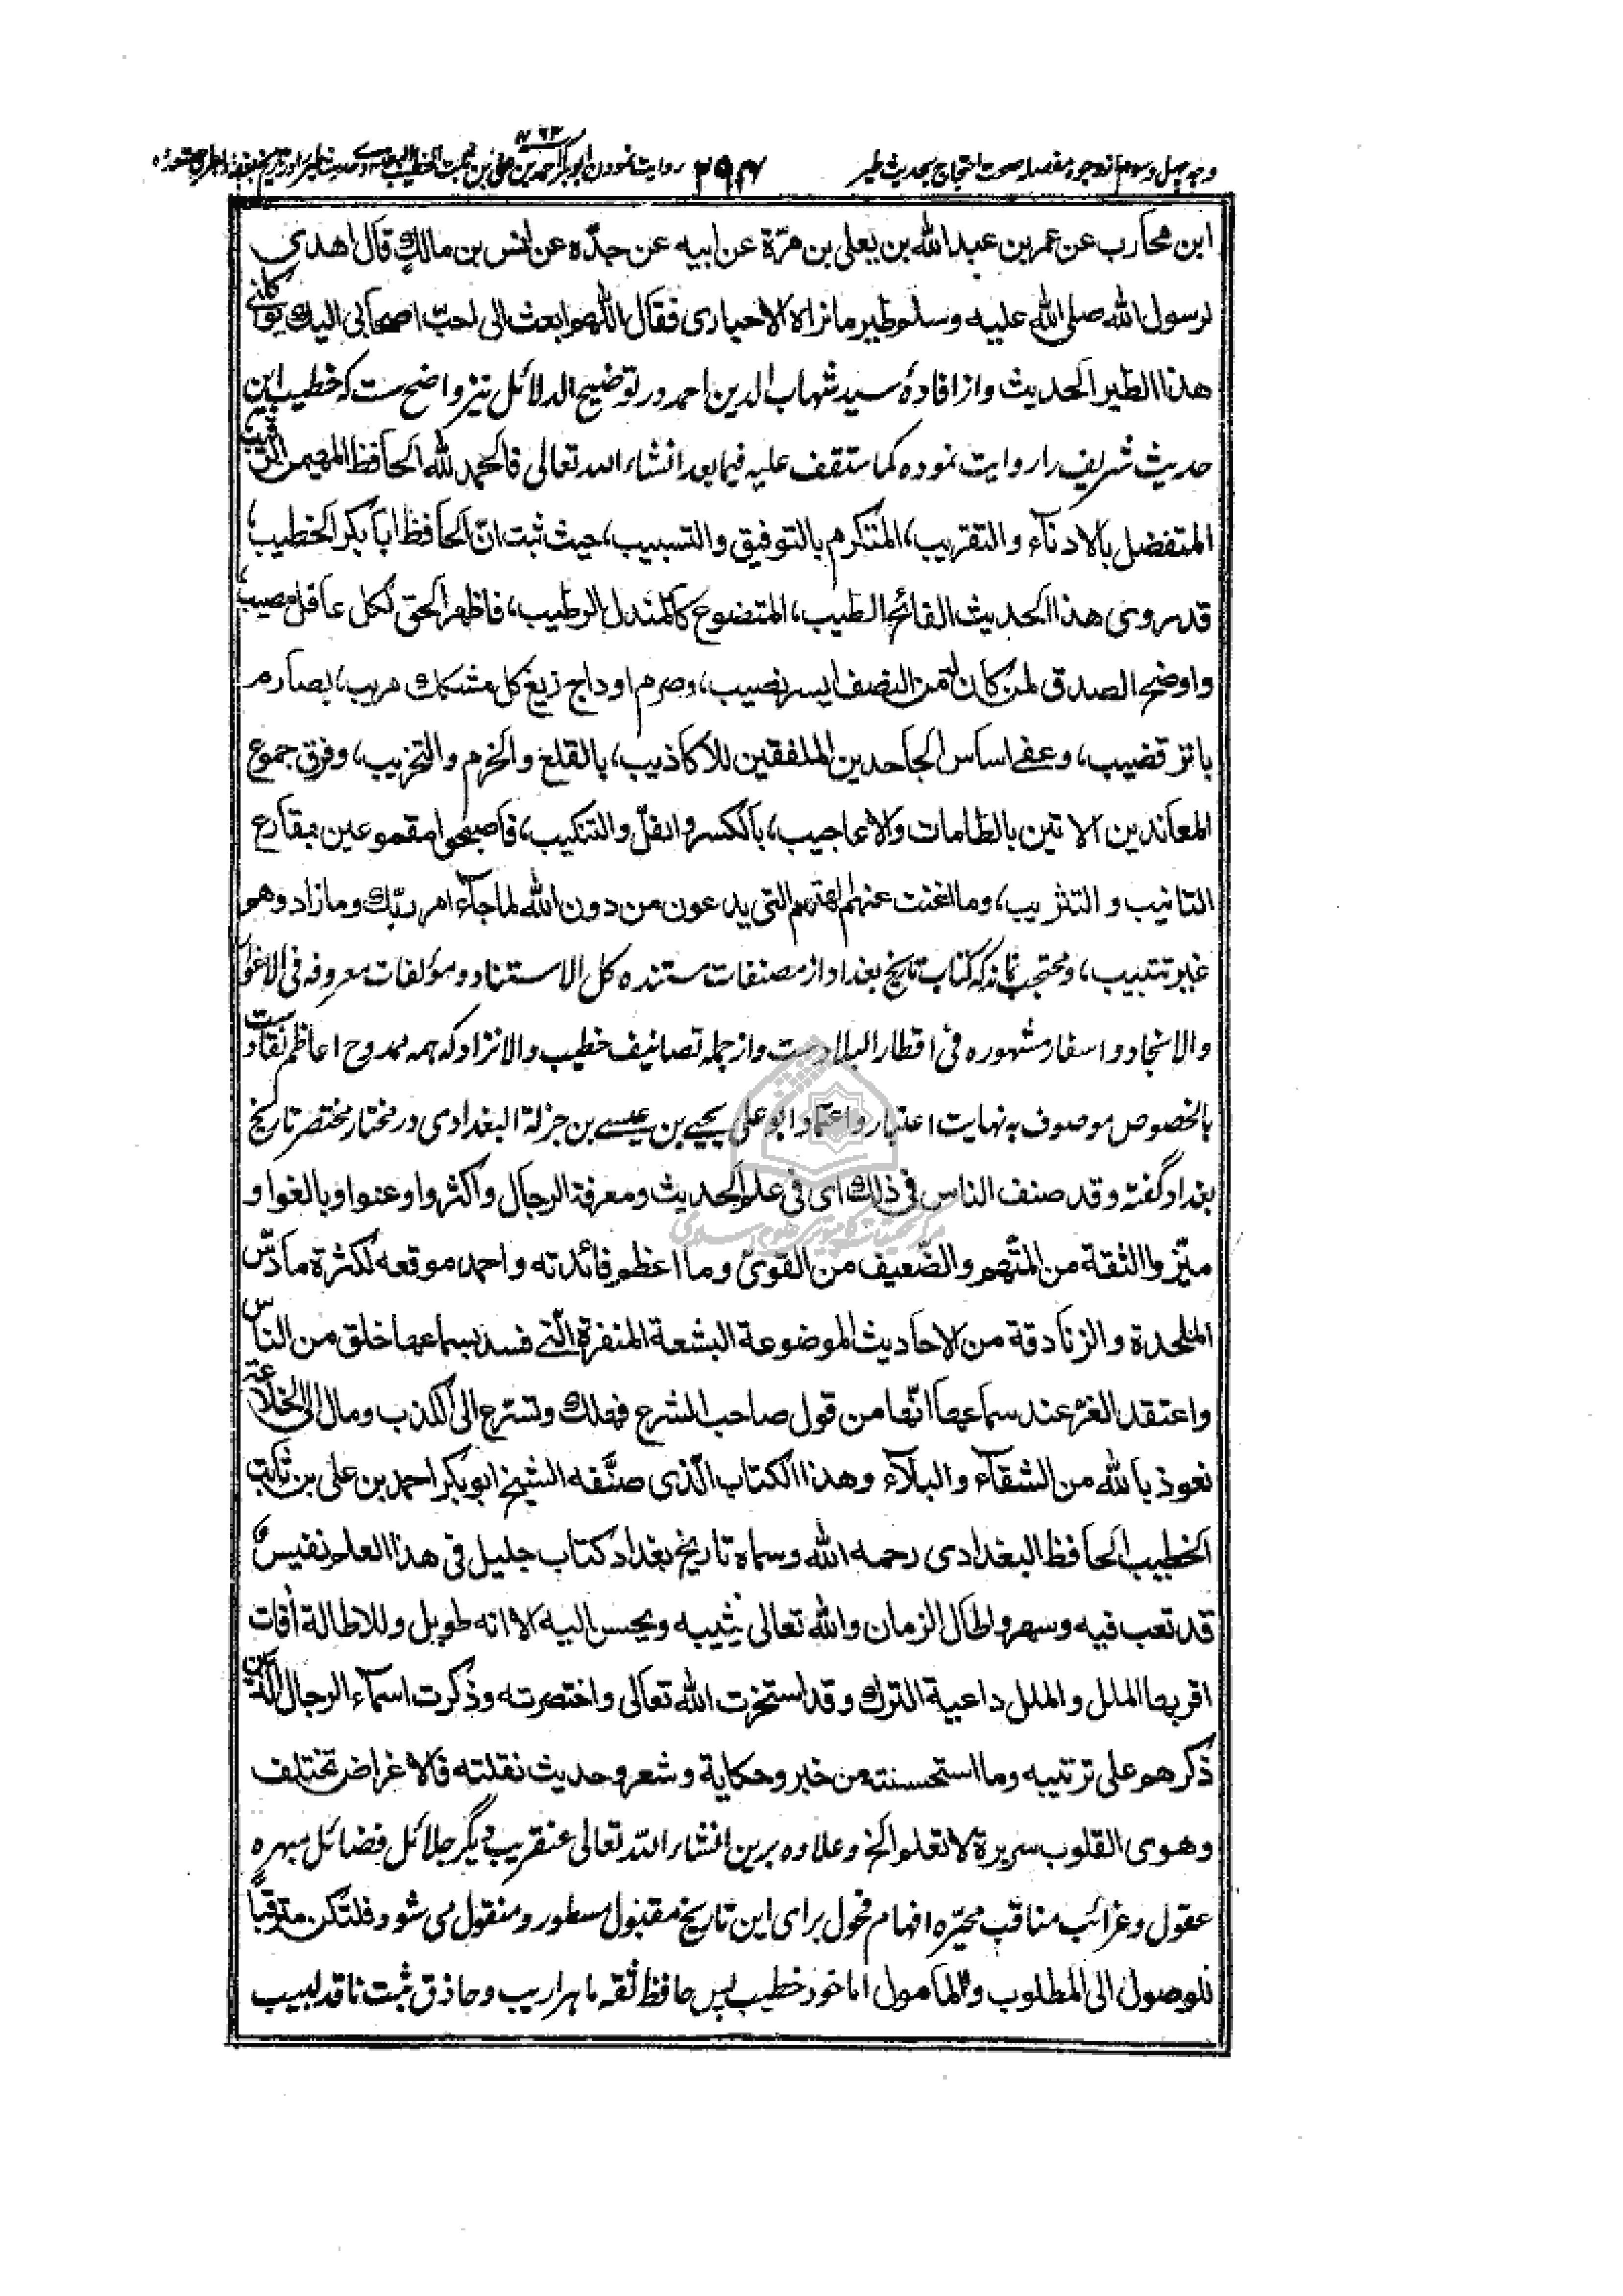 وجہ چہل و سوم از وجوہ مفصلہ صحت احتجاج بحدیث طیر ۲۵۶ روایت نمودن ابوبکر احمد بن علی بن ثابت الخطیب البغدادی
ابن محارب عن عمر بن عبد الله بن يعلى بن مرّة عن ابيه عن جدّه عن انس بن مالك قال اهدى
لرسول الله صلى الله عليه وسلم طير ما نراه الا حبارى فقال اللهم ابعث الى احبّ اصحابى اليك يواكلنى
هذا الطير الحديث واز افادهٔ سيد شهاب الدين احمد در توضيح الدلائل نيز واضح ست كه خطيب اين
حديث شريف را روايت نموده كما ستقف عليه فيما بعد انشاء الله تعالى فالحمد لله الحافظ المهيمن الرقيب
المتفضل بالادناء والتقريب، المتكرم بالتوفيق والتسبيب، حيث ثبت انّ الحافظ ابا بكر الخطيب،
قد روى هذا الحديث الفائح الطيب، المتضوع كالمندل الرطيب، فاظهر الحق لكل عاقل مصيب،
واوضح الصدق لمن كان له من النصف ايسر نصيب، وصرم اوداج زيغ كل مشكك مريب، بصارم
باتر قضيب، وعفى اساس الجاحدين الملفقين للاكاذيب، بالقلع والخرم والتخريب، وفرق جموع
المعاندين الاتين بالطامات والاعاجيب، بالكسر والفلّ والتنكيب، فاصبحوا مقموعين بمقارع
التانيب والتثريب، وما اغنت عنهم الهتهم التى يدعون من دون الله لما جاء امر ربّك وما زادوهم
غير تتبيب، ومحتجب نماند كه كتاب تاريخ بغداد از مصنفات مستنده كل الاستناد ومؤلفات معروفه فى الاغوار
والانجاد واسفار مشهوره فى اقطار البلاد ست واز جمله تصانيف خطيب والانژاد كه همه ممدوح اعاظم نقاد ست
بالخصوص موصوف به نهايت اعتبار واعتماد ابو على يحيى بن عيسى بن جزلة البغدادى در مختار مختصر تاريخ
بغداد گفته وقد صنف الناس فى ذلك اى فى علم الحديث ومعرفة الرجال واكثروا وعنوا وبالغوا و
ميّزوا الثقة من المتّهم والضّعيف من القوىّ وما اعظم فائدته واحمد موقعه لكثرة ما دسّ
الملحدة والزنادقة من الاحاديث الموضوعة البشعة المنفرة الّتى فسد بسماعها خلق من الناس
واعتقد الغرّ عند سماعها انّها من قول صاحب الشرع فهلك وتسرع الى الكذب ومال الى الخلاعة
نعوذ بالله من الشقاء والبلاء وهذا الكتاب الّذى صنّفه الشيخ ابو بكر احمد بن على بن ثابت
الخطيب الحافظ البغدادى رحمه الله وسماه تاريخ بغداد كتاب جليل فى هذا العلم نفيس
قد تعب فيه وسهر واطال الزمان والله تعالى يثيبه ويحسن اليه الا انه طويل وللاطالة افات
اقربها الملل والملل داعية الترك وقد استخرت الله تعالى واختصرته وذكرت اسماء الرجال الّذين
ذكرهم على ترتيبه وما استحسنته من خبر وحكاية وشعر وحديث نقلته فالاغراض تختلف
وهوى القلوب سريرة لا تعلم الخ وعلاوه برين انشاء الله تعالى عنقريب ديگر جلائل فضائل مبهره
عقول وغرائب مناقب محيّره افهام فحول براى اين تاريخ مقبول مسطور ومنقول مى شود فلتكن مترقبا
للوصول الى المطلوب والمامول اما خود خطيب پس حافظ ثقه ماهر اريب وحاذق ثبت ناقد لبيب
مرکز تحقیقات کامپیوتری علوم اسلامی